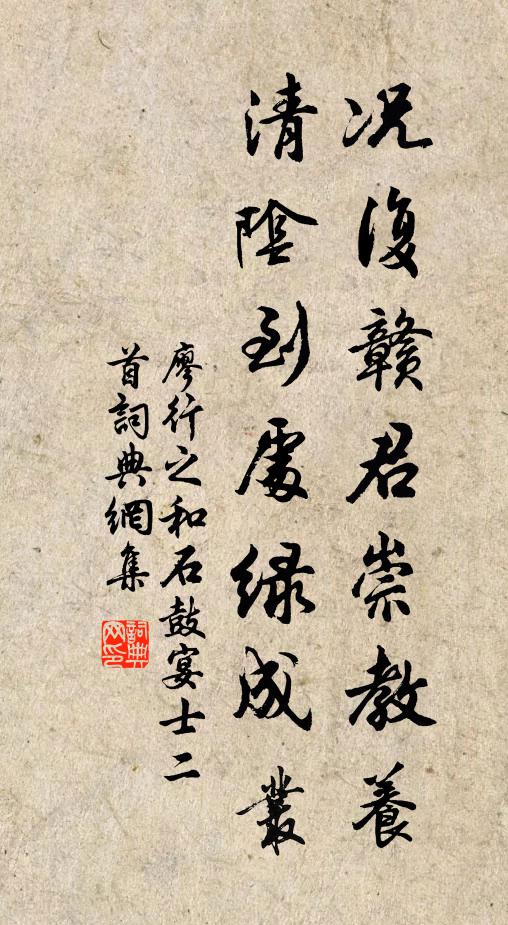 况復贛君崇教養
清陰到處綠成叢
廖行之和石鼓宴士二
首詞典網集
詞典網印